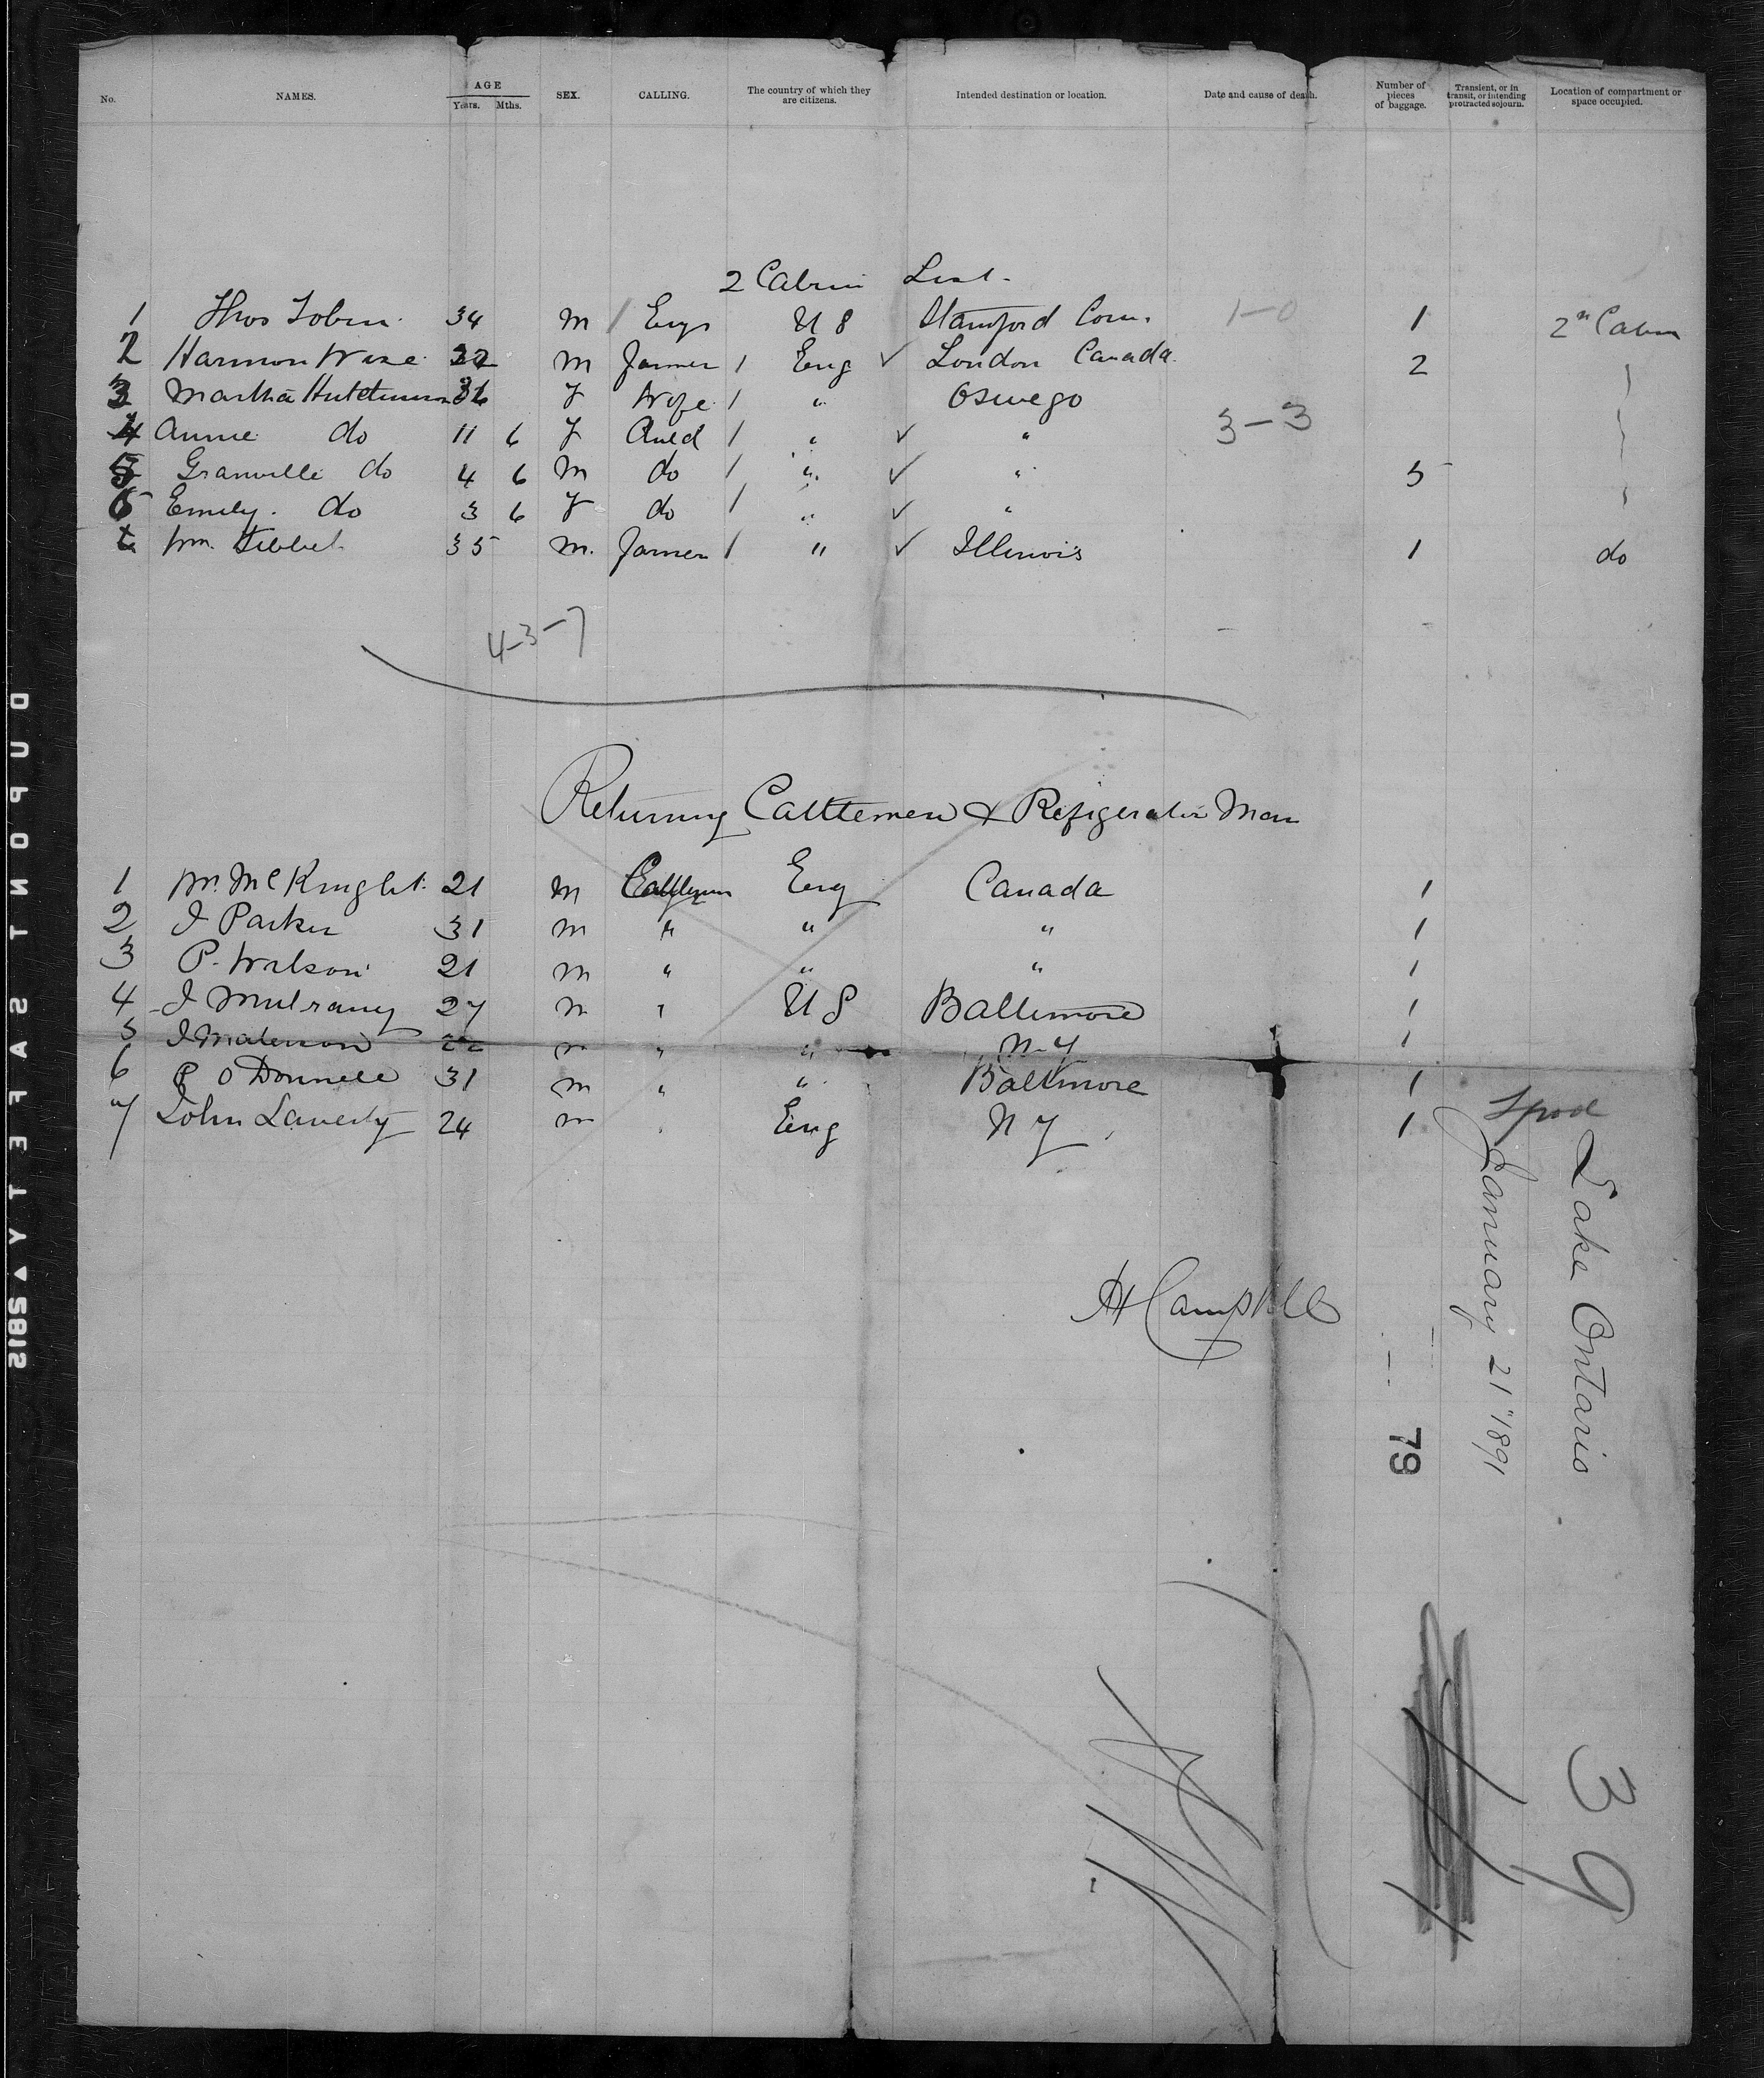 No. NAMES. AGE Years. Mths. SEX. CALLING. The country of which they are citizens. Intended destination or location. Date and cause of death. Number of pieces of baggage. Transient, or in transit, or intending protracted sojourn. Location of compartment or space occupied.
2 Cabin List
1 Thos Tobin 34 M 1 U S Stamford Conn. 1-0 1 2n Cabin
2 Harmon Wise M Farmer 1 Eng ✓ London Canada 2
3 Martha Hutchinson 36 F Wife 1 " Oswego
4 Annie do 11 6 F Child 1 " ✓ " 3-3
5 Granville do 4 6 M do 1 " ✓ " 5
6 Emily do 3 6 F do 1 " ✓ "
Wm. 35 M. Farmer 1 " ✓ Illinois 1 do
4-3-7
Returning Cattlemen & Refrigerator Men
1 Wm. McKnight 21 M Cattleman Eng Canada 1
2 J Parker 31 M " " " 1
3 P. Watson 21 M " " " 1
4 J Mulrany 27 M " U S Baltimore 1
5 22 M " " N.Y 1
6 P O'Donnell 31 M " " Baltimore 1
7 John Laverty 24 M " Eng N Y 1
Lpool
Lake Ontario
January 21" 1891
H Campbell
79
39
DUPONT SAFETY ▲ S8IS